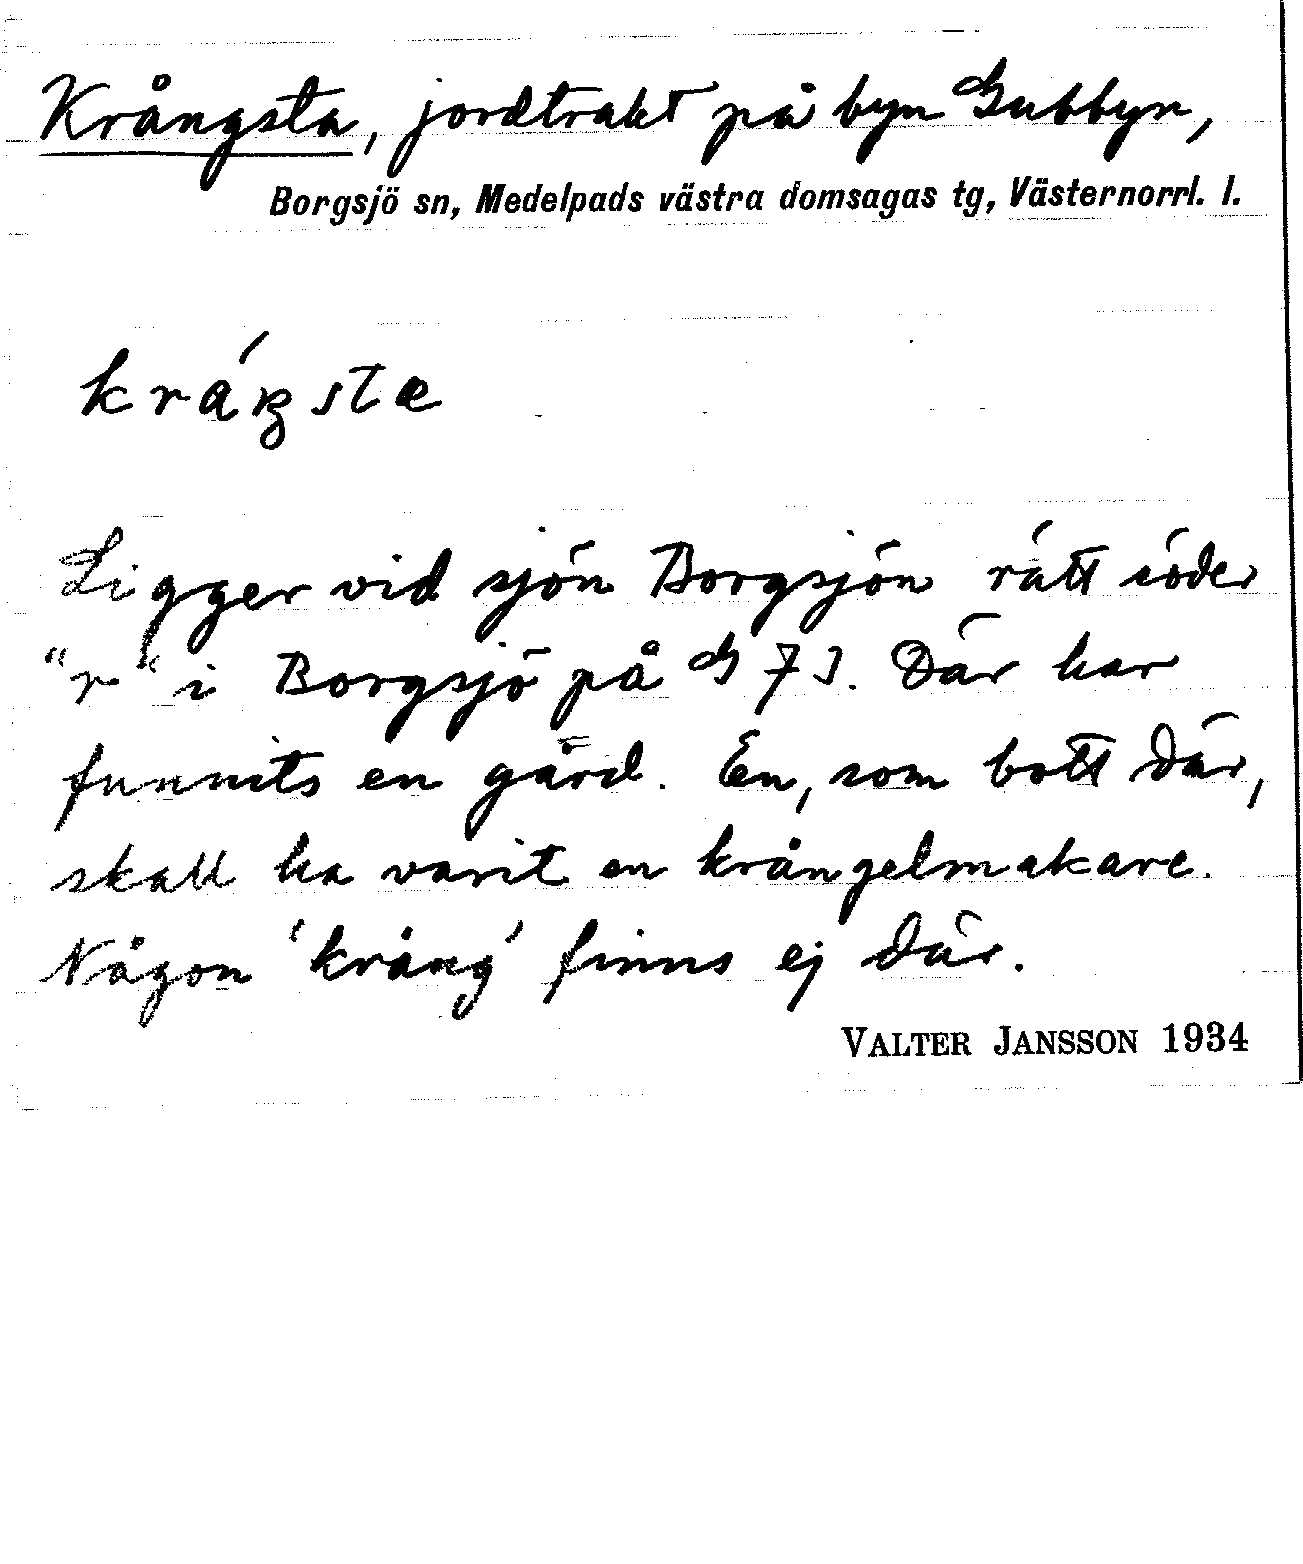 Krångsta, jordtrakt på byn Gubbyn,
Borgsjö sn, Medelpads västra domsagas tg, Västernorrl. l.
Ligger vid sjön Borgsjön rätt söder
"r" i Borgsjö på G 73. Där har
funnits en gård. En, som bott där,
skall ha varit en krångelmakare.
Någon 'krång' finns ej där.
VALTER JANSSON 1934